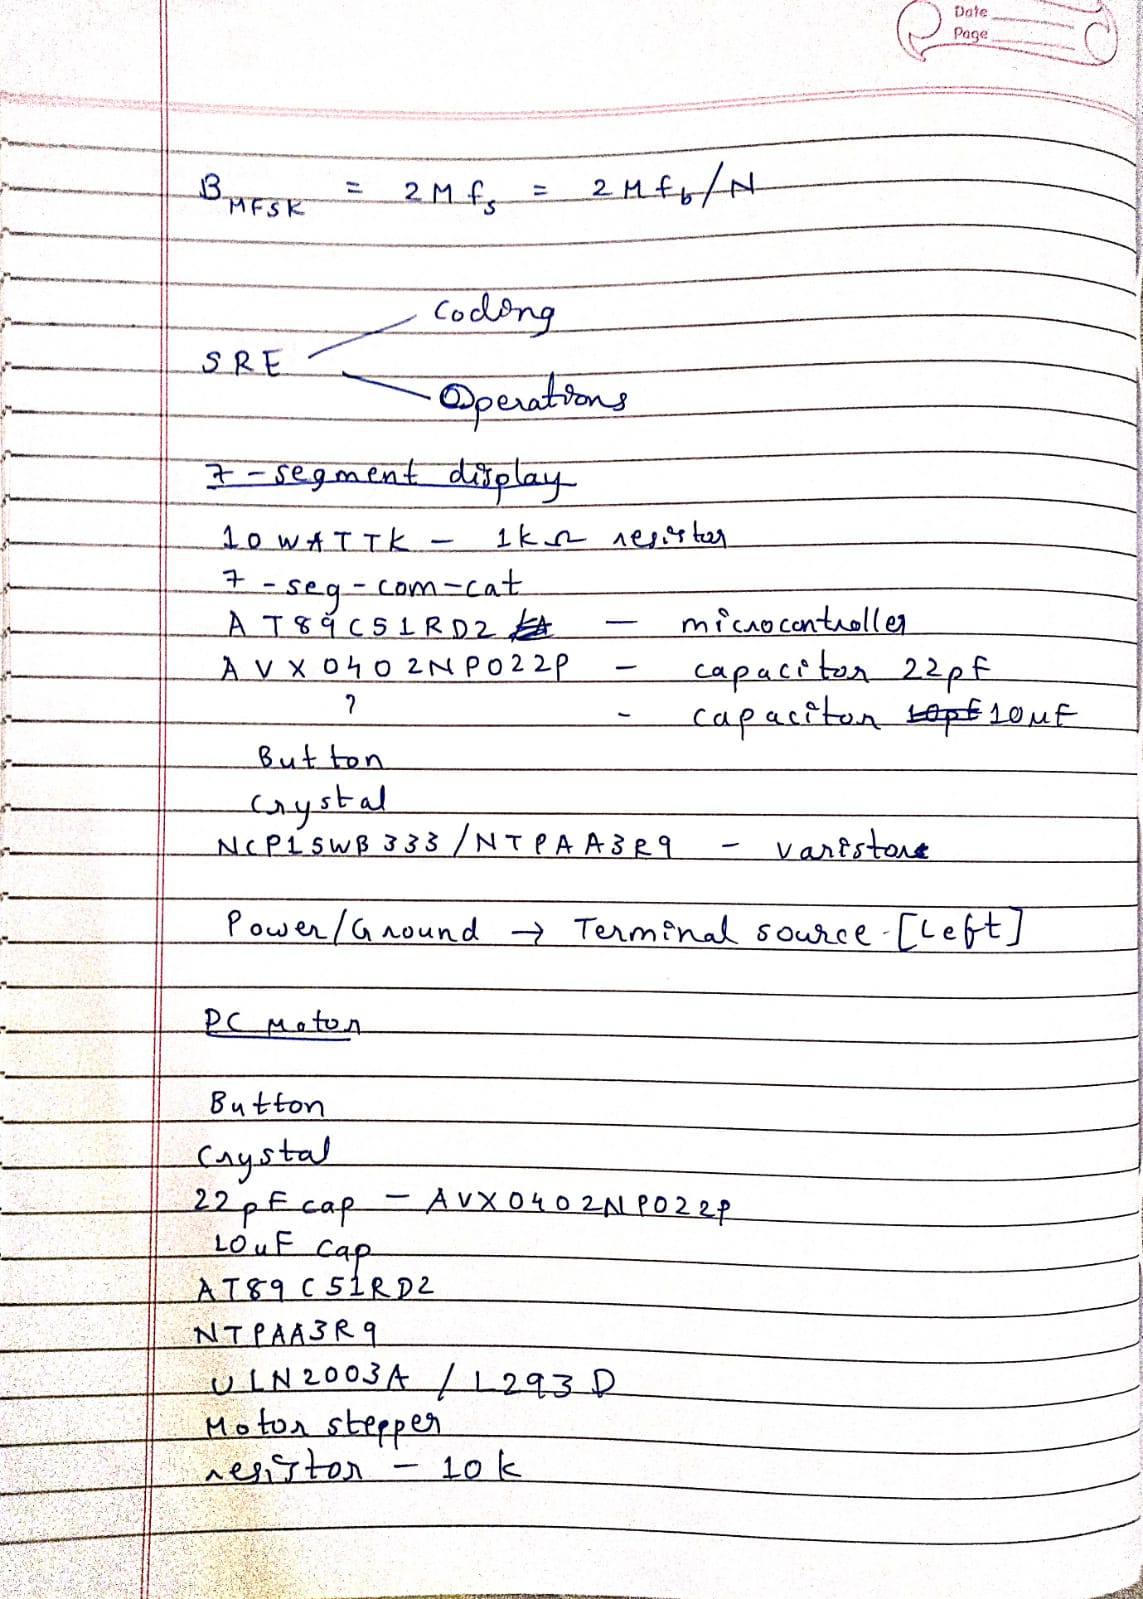 Date
Page
B MFSK = 2 M fs = 2 M fb/N
Coding
SRE
Operations
7-segment display
10WATTK - 1kΩ resistor
7-seg-com-cat
AT89C51RD2 - microcontroller
AVX0402NPO22P - capacitor 22pF
? - capacitor 10pF 10uF
Button
Crystal
NCP15WB333/NTPAA3R9 - varistor
Power/Ground → Terminal source-[Left]
DC Motor
Button
Crystal
22pF cap - AVX0402NPO22P
10uF cap
AT89C51RD2
NTPAA3R9
ULN2003A / L293D
Motor stepper
resistor - 10k